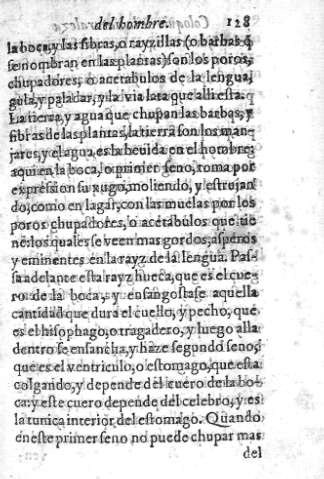 del hombre. 128
la boca, y las fibras, o rayzillas (o barbas q̃
se nombran en las plantas) son los poros,
chupadores, o acetabulos de la lengua,
gula, y paladar, y la via lata que alli esta.
La tierra, y agua que chupan las barbas, y
fibras de las plantas, la tierra son los man-
jares, y el agua es la beuida en el hombre:
aqui en la boca, o primer seno, toma por
expression su xugo, moliendo, y estrujan
do, como en lagar, con las muelas por los
poros chupadores, o acetabulos que tie
ne: los quales se veen mas gordos, asperos
y eminentes en la rayz de la lengua. Pas-
sa adelante esta rayz hueca, que es el cue-
ro de la boca, y ensangostase aquella
cantidad que dura el cuello, y pecho, que
es el hisophago, o tragadero, y luego alla
dentro se ensancha, y haze segundo seno,
que es el ventriculo, o estomago, que esta
colgando, y depende del cuero de la bo-
ca: y este cuero depende del celebro, y es
la tunica interior del estomago. Quando
en este primer seno no puede chupar mas
del